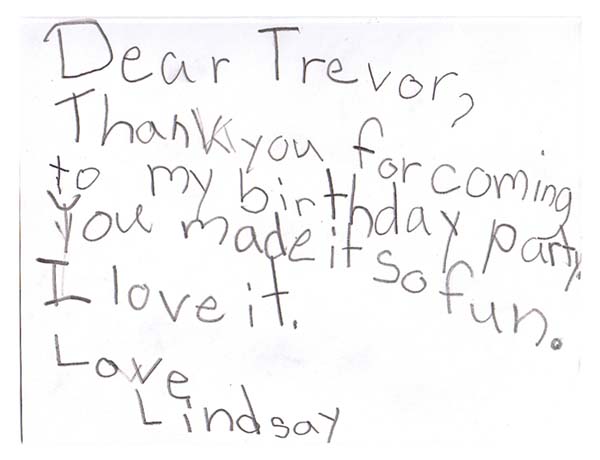 Dear Trevor,
Thank you for coming
to my birthday party.
You made it so fun.
I love it.
Love
Lindsay